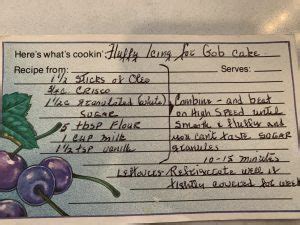 Here's what's cookin' Fluffy Icing for Gob cake
Recipe from: Serves:
1 1/2 sticks of Cleo
Crisco
1 1/2 c granulated (white) Combine - and beat
sugar on High Speed until
5 tbsp flour smooth & fluffy and
1 cup milk you can't taste sugar
1 1/2 tsp vanilla granules
10-15 minutes
Leftovers Refrigerate well if
tightly covered for week